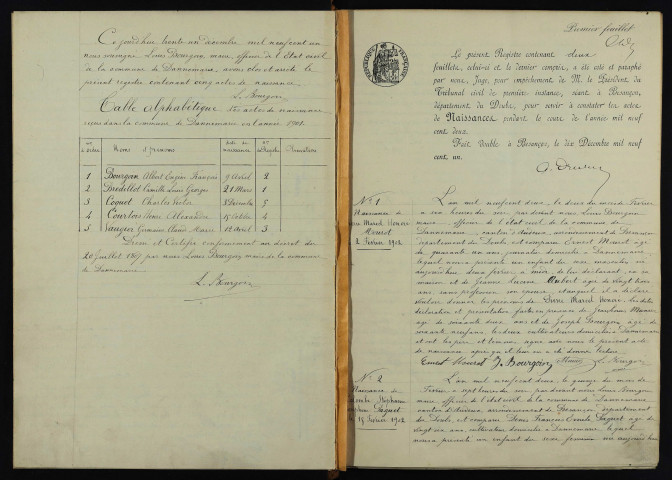 Ce jourd'hui trente un décembre mil neuf cent un
nous soussigné Louis Bourgon, maire, officier de l'état civil
de la commune de Dannemarie, avons clos et arrêté le
présent registre contenant cinq actes de naissance
L. Bourgon
Table Alphabétique des actes de naissance
reçus dans la commune de Dannemarie en l'année 1901.
Nos d'ordre Noms et prénoms date de naissance Nos du Registre
1 Bourgoin Albert Eugène François 9 Avril 2
2 Bredillot Camille Louis Georges 21 Mars 1
3 Coquet Charles Victor Décembre 5
4 Courtois Alexandre 15 Octobre 4
5 Marie Avril 3
Dressé et Certifié conformément au décret du
20 Juillet 1807 par nous Louis Bourgon, maire de la commune
de Dannemarie.
L. Bourgon
Premier feuillet
Le présent Registre contenant deux
feuillets, celui-ci et le dernier compris, a été coté et paraphé
par nous, Juge, pour empêchement de M. le Président du
Tribunal civil de première instance, séant à Besançon,
département du Doubs, pour servir à constater les actes
de Naissances pendant le cours de l'année mil neuf
cent deux.
Fait double à Besançon, le dix Décembre mil neuf
cent un.
RÉPUBLIQUE FRANÇAISE
N° 1
Naissance de
Marcel Honoré
Mouret
2 Février 1902
L'an mil neuf cent deux, le deux du mois de Février
à heures du par devant nous Louis Bourgon
maire, officier de l'état civil de la commune de
Dannemarie, canton d'Audeux, arrondissement de Besançon
département du Doubs est comparu Ernest Mouret âgé
de quarante un ans, journalier domicilié à Dannemarie,
lequel nous a présenté un enfant du sexe masculin né
aujourd'hui deux février à de lui déclarant, en sa
maison et de Jeanne Aubert âgée de vingt trois
ans, sans profession, son épouse, et auquel il a déclaré
vouloir donner les prénoms de Pierre Marcel Honoré. Les dites
déclaration et présentation faites en présence de
âgé de soixante deux ans et de Joseph Bourgoin âgé de
soixante ans, les deux cultivateurs domiciliés à Dannemarie
et ont les père et témoins signé avec nous le présent acte
de naissance après qu'il leur en a été donné lecture
Ernest Mouret J. Bourgoin L. Bourgon
N° 2
Naissance de
Stéphanie
Paguet
15 Février 1902
L'an mil neuf cent deux, le quinze du mois de
Février à sept heures du par devant nous Louis Bourgon
maire, officier de l'état civil de la commune de Dannemarie
canton d'Audeux, arrondissement de Besançon, département
du Doubs, est comparu Louis François Emile Paguet âgé de
vingt six ans, cultivateur domicilié à Dannemarie, lequel
nous a présenté un enfant du sexe féminin né aujourd'hui